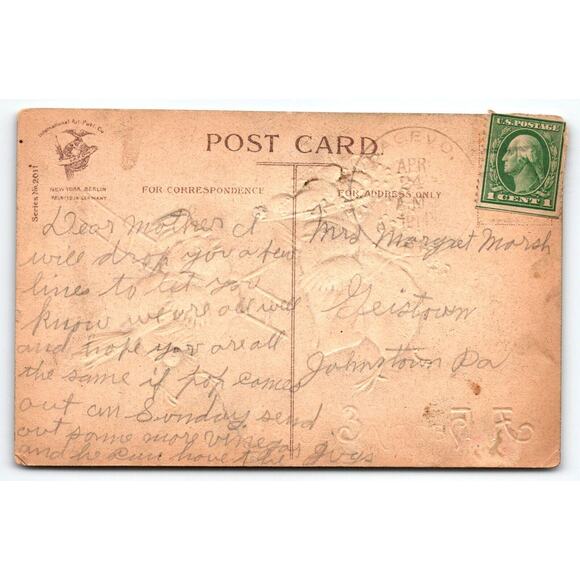 International Art Publ. Co.
NEW YORK, BERLIN
PRINTED IN GERMANY
Series No. 2011
POST CARD
FOR CORRESPONDENCE
FOR ADDRESS ONLY
APR
U.S. POSTAGE
1 CENT 1
Dear Mother I
will drop you a few
lines to let you
know we are all well
and hope you are all
the same if pop comes
out on Sunday send
out some more vinegar
and he can have the Jugs
Mrs Margret Marsh
Geistown
Johnstown Pa